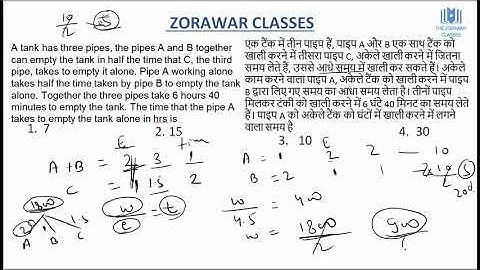 ZORAWAR CLASSES
THE ZORAWAR
CLASSES
A tank has three pipes, the pipes A and B together
can empty the tank in half the time that C, the third
pipe, takes to empty it alone. Pipe A working alone
takes half the time taken by pipe B to empty the tank
alone. Together the three pipes take 6 hours 40
minutes to empty the tank. The time that the pipe A
takes to empty the tank alone in hrs is
एक टैंक में तीन पाइप हैं, पाइप A और B एक साथ टैंक को
खाली करने में तीसरा पाइप C, अकेले खाली करने में जितना
समय लेते हैं, उससे आधे समय में खाली कर सकते हैं। अकेले
काम करने वाला पाइप A, अकेले टैंक को खाली करने में पाइप
B द्वारा लिए गए समय का आधा समय लेता है। तीनों पाइप
मिलकर टंकी को खाली करने में 6 घंटे 40 मिनट का समय लेते
हैं। पाइप A को अकेले टैंक को घंटों में खाली करने में लगने
वाला समय है
1. 7 2. 15 3. 10 4. 30
A + B = 3 1
C = 1.5 2
A = 1 2 10
B = 2 1
w/e = t
w/4.5 = 400
w = 1800
A B C